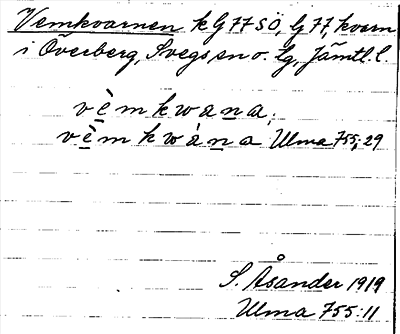 Vemkvarnen k G 77 SÖ, G 77, kvarn
i Överberg, Svegs sn o. lg, Jämtl. l.
vèmkwana,
vèmkwána Ulma 755:29
S. Åsander 1919
Ulma 755:11